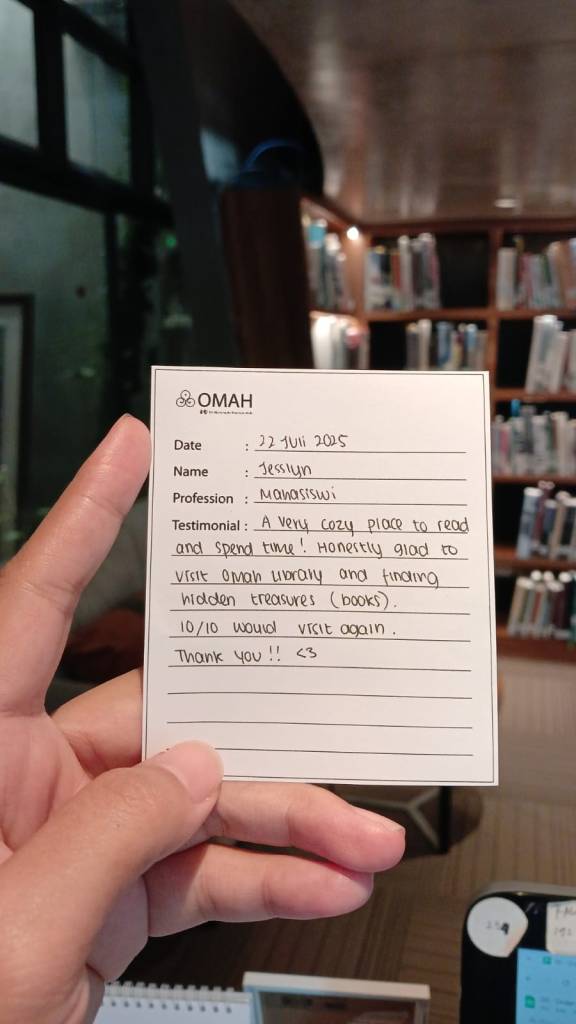 OMAH
Date : 22 Juli 2025
Name : Jesslyn
Profession : Mahasiswi
Testimonial : A very cozy place to read
and spend time! Honestly glad to
visit Omah Library and finding
hidden treasures (books).
10/10 would visit again.
Thank you!! <3